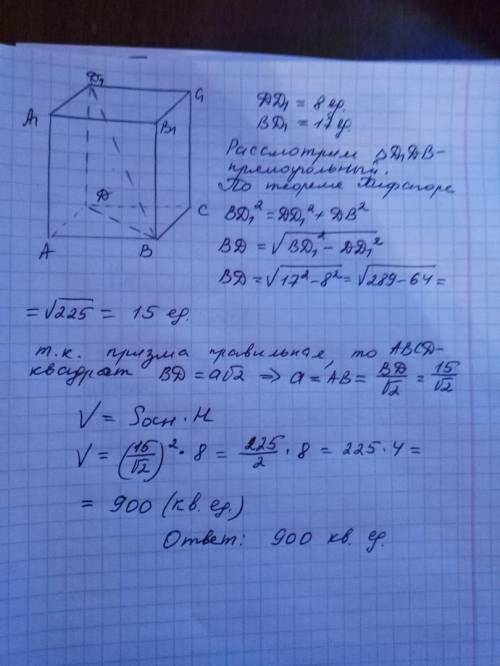 D₁
C₁
A₁
B₁
D
C
A
B
DD₁ = 8 ед.
BD₁ = 17 ед.
Рассмотрим △D₁DB-
прямоугольный.
По теореме Пифагора
BD₁² = DD₁² + DB²
BD = √(BD₁² − DD₁²)
BD = √(17² − 8²) = √(289 − 64) =
= √225 = 15 ед.
т.к. призма правильная, то ABCD-
квадрат BD = a√2 ⇒ a = AB = BD/√2 = 15/√2
V = Sосн · H
V = (15/√2)² · 8 = 225/2 · 8 = 225 · 4 =
= 900 (кв. ед.)
Ответ: 900 кв. ед.